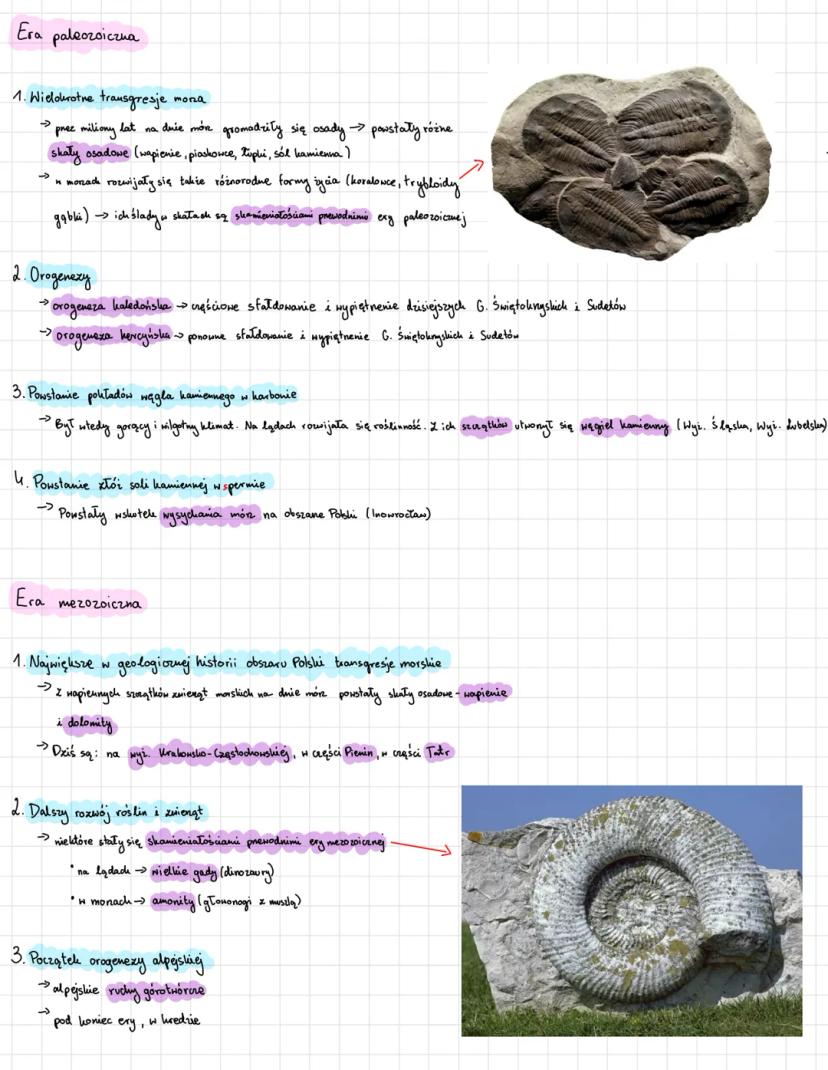 Era paleozoiczna
1. Wielokrotne transgresje morza
→ przez miliony lat na dnie mórz gromadziły się osady → powstały różne
skały osadowe (wapienie, piaskowce, łupki, sól kamienna)
→ w morzach rozwijały się także różnorodne formy życia (koralowce, tryboloidy
gąbki) → ich ślady w skałach są skamieniałościami przewodnimi ery paleozoicznej
2. Orogenezy
→ orogeneza kaledońska → częściowe sfałdowanie i wypiętnenie dzisiejszych G. Świętokrzyskich i Sudetów
→ orogeneza hercyńska → ponowne sfałdowanie i wypiętnenie G. Świętokrzyskich i Sudetów
3. Powstanie pokładów węgla kamiennego w karbonie
→ Był wtedy gorący i wilgotny klimat. Na lądach rozwijała się roślinność. Z ich szczątków utworzył się węgiel kamienny (Wyż. Śląska, Wyż. Lubelska)
4. Powstanie złóż soli kamiennej w spermie
→ Powstały wskutek wysychania mórz na obszarze Polski (Inowrocław)
Era mezozoiczna
1. Największe w geologicznej historii obszaru Polski transgresje morskie
→ z wapiennych szczątków zwierząt morskich na dnie mórz powstały skały osadowe - wapienie
i dolomity
→ Dziś są: na wyż. Krakowsko-Częstochowskiej, w części Pienin, w części Tatr
2. Dalszy rozwój roślin i zwierząt
→ niektóre stały się skamieniałościami przewodnimi ery mezozoicznej
• na lądach → wielkie gady (dinozaury)
• w morzach → amonity (głowonogi z muszlą)
3. Początek orogenezy alpejskiej
→ alpejskie ruchy górotwórcze
→ pod koniec ery, w kredzie